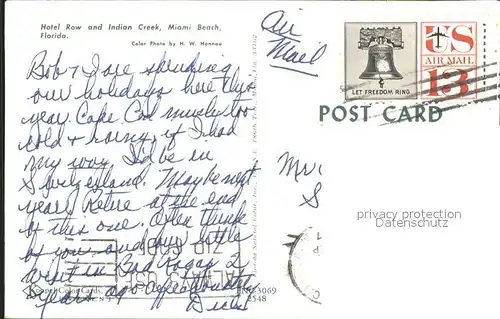 Hotel Row and Indian Creek, Miami Beach,
Florida.
Color Photo by H. W. Hannau
Air
Mail
US
AIR MAIL
13
LET FREEDOM RING
POST CARD
Bob & I are spending
our holidays here this
year. Cape Cod much too
cold & rainy, if I had
my way, I'd be in
Switzerland. Maybe next
year. Retire at the end
of this one. Often think
of you and our little
visit in Bad Ragaz 2
years ago
Mr
S
privacy protection
Datenschutz
ZIP CODE
ALWAYS USE
Koppel Color Cards,
3069
2548